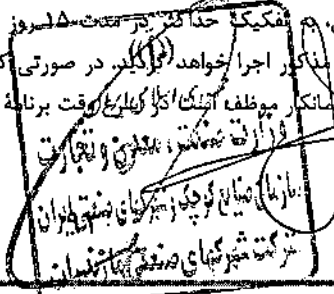 به تفکیک حداکثر در مدت ۱۵ روز
مذکور اجرا خواهد گردید. در صورتی که
مانکار موظف است در وقت برنامۀ
وزارت صنعت، معدن و تجارت
سازمان صنایع کوچک و شهرکهای صنعتی ایران
شرکت شهرکهای صنعتی مازندران